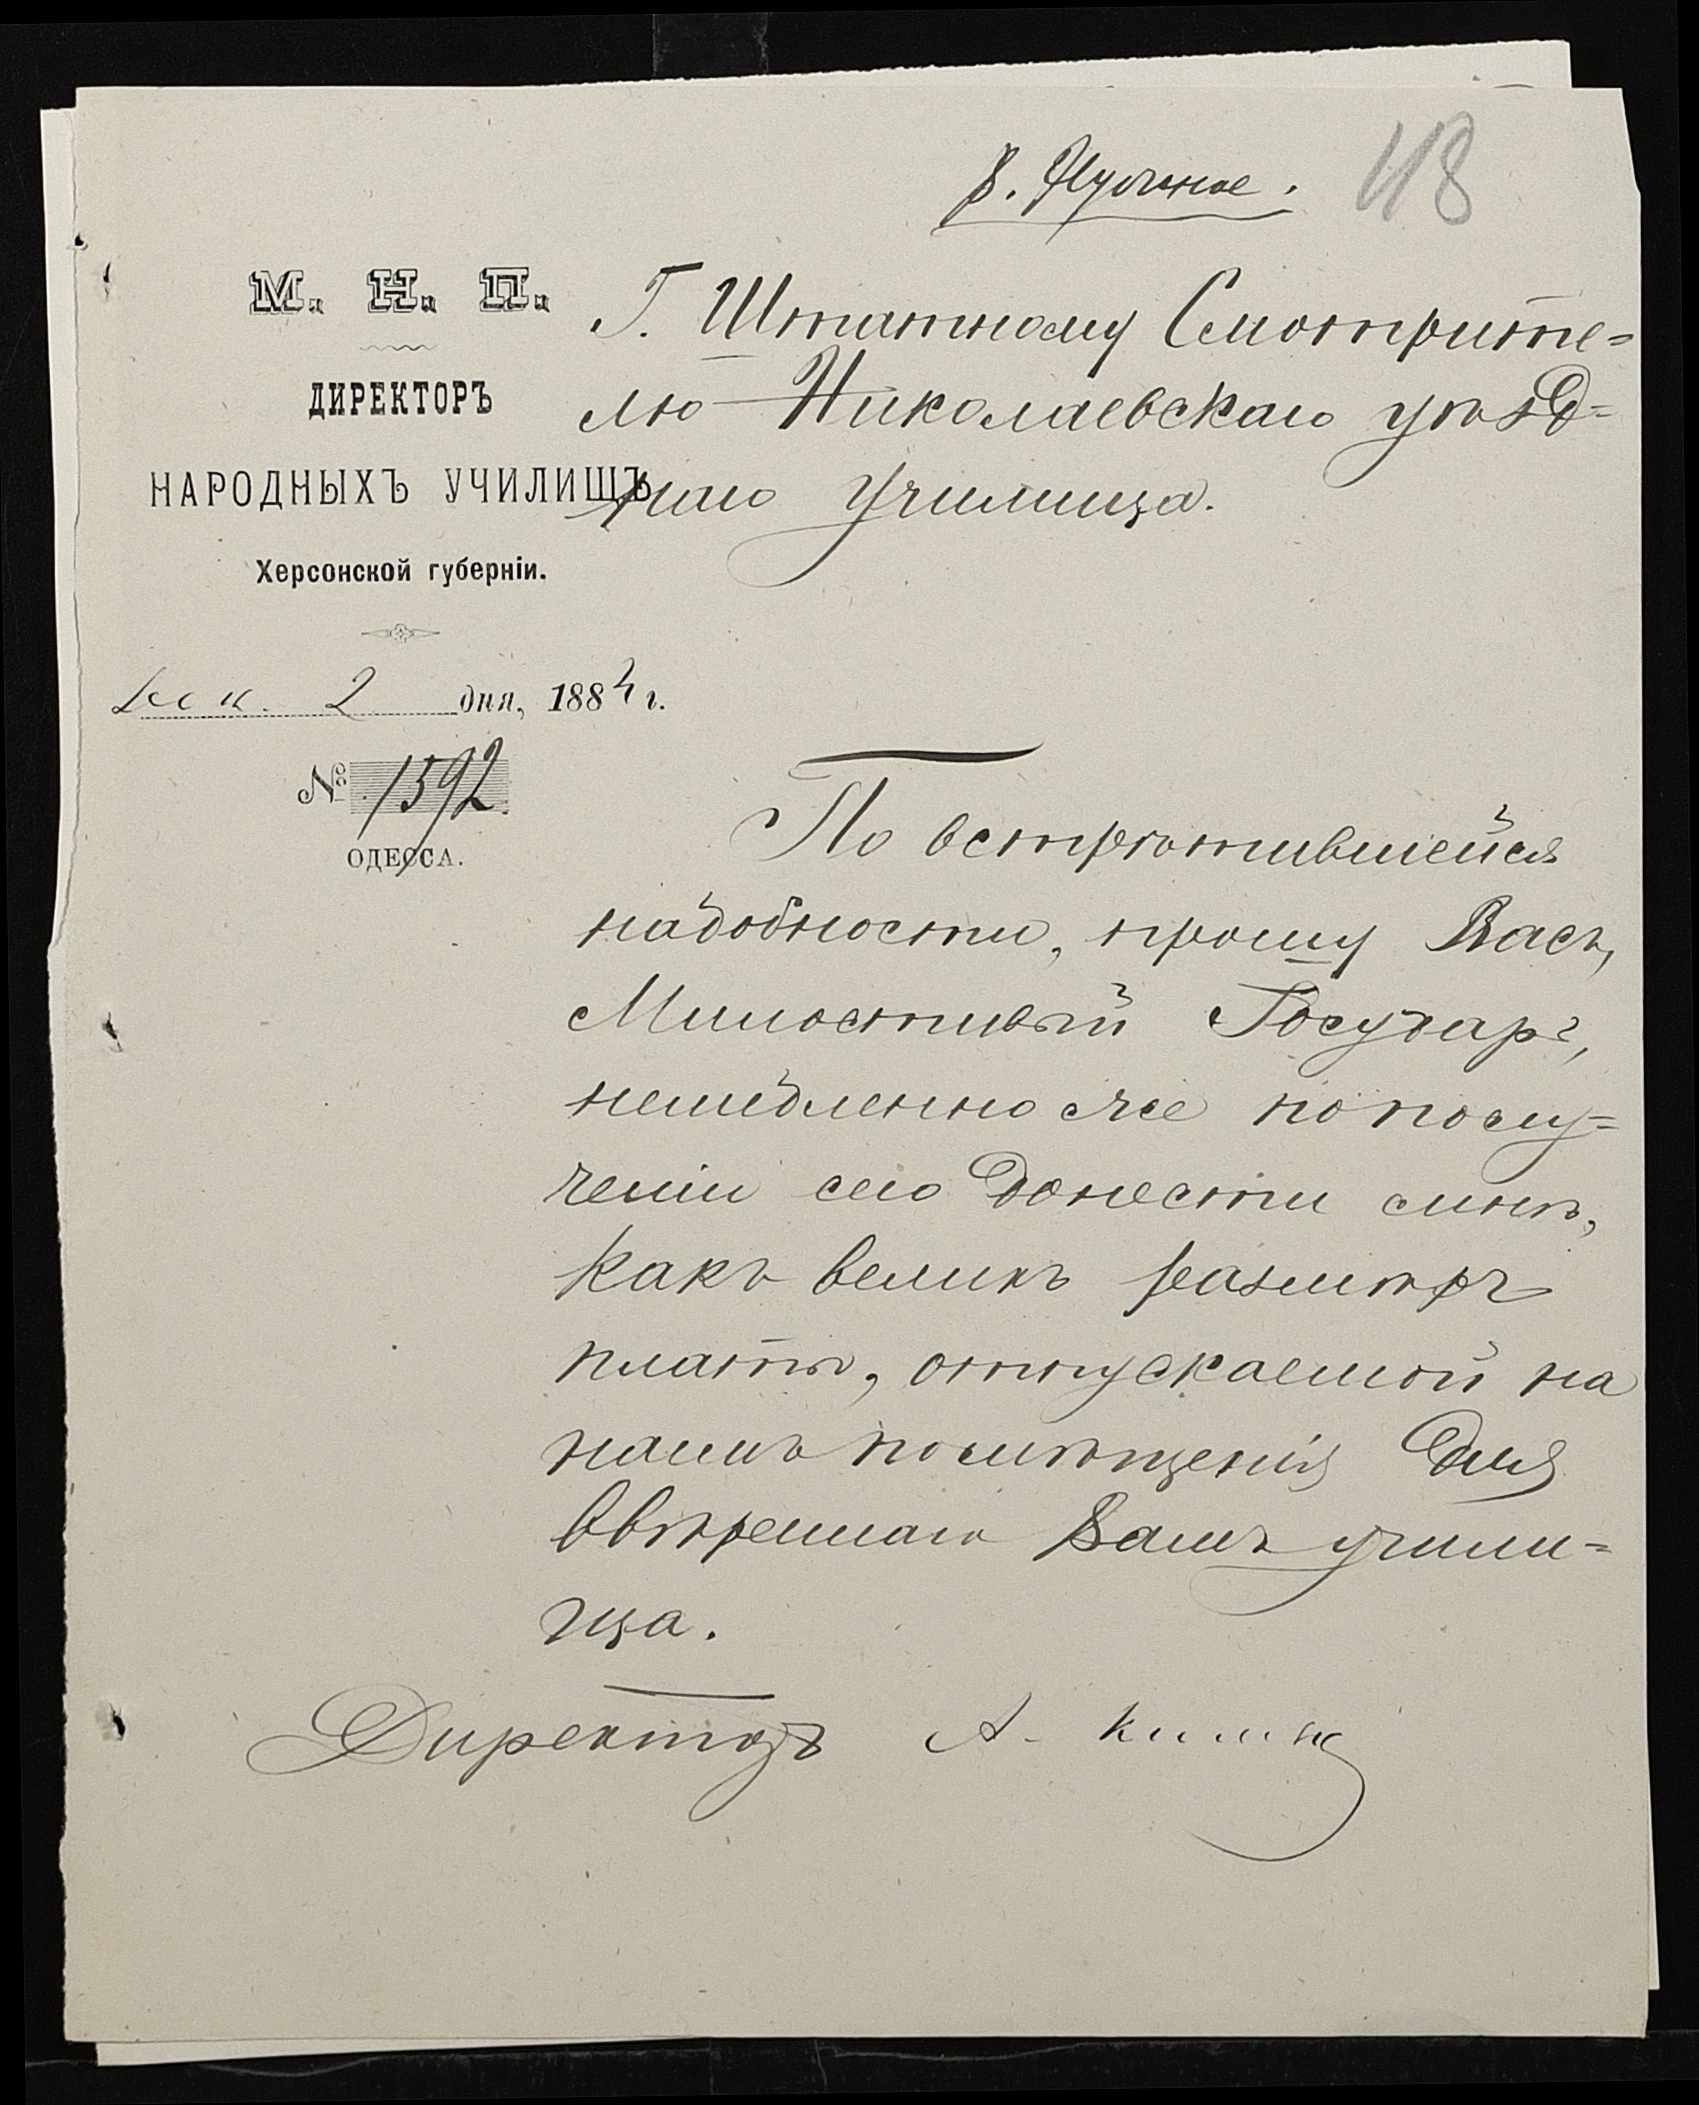 В. Нужное.
48
М. Н. П.
ДИРЕКТОРЪ
НАРОДНЫХЪ УЧИЛИЩЪ
Херсонской губерніи.
Дек. 2 дня, 1884 г.
№ 1592.
ОДЕССА.
Г. Штатному Смотрите=
лю Николаевскаго уѣзд=
наго училища.
По встрѣтившейся
надобности, прошу Васъ,
Милостивый Государь,
немедленно же по полу=
ченіи сего донести мнѣ,
какъ великъ размѣръ
платы, отпускаемой на
наемъ помѣщенія для
ввѣреннаго Вамъ учили=
ща.
Директоръ А.